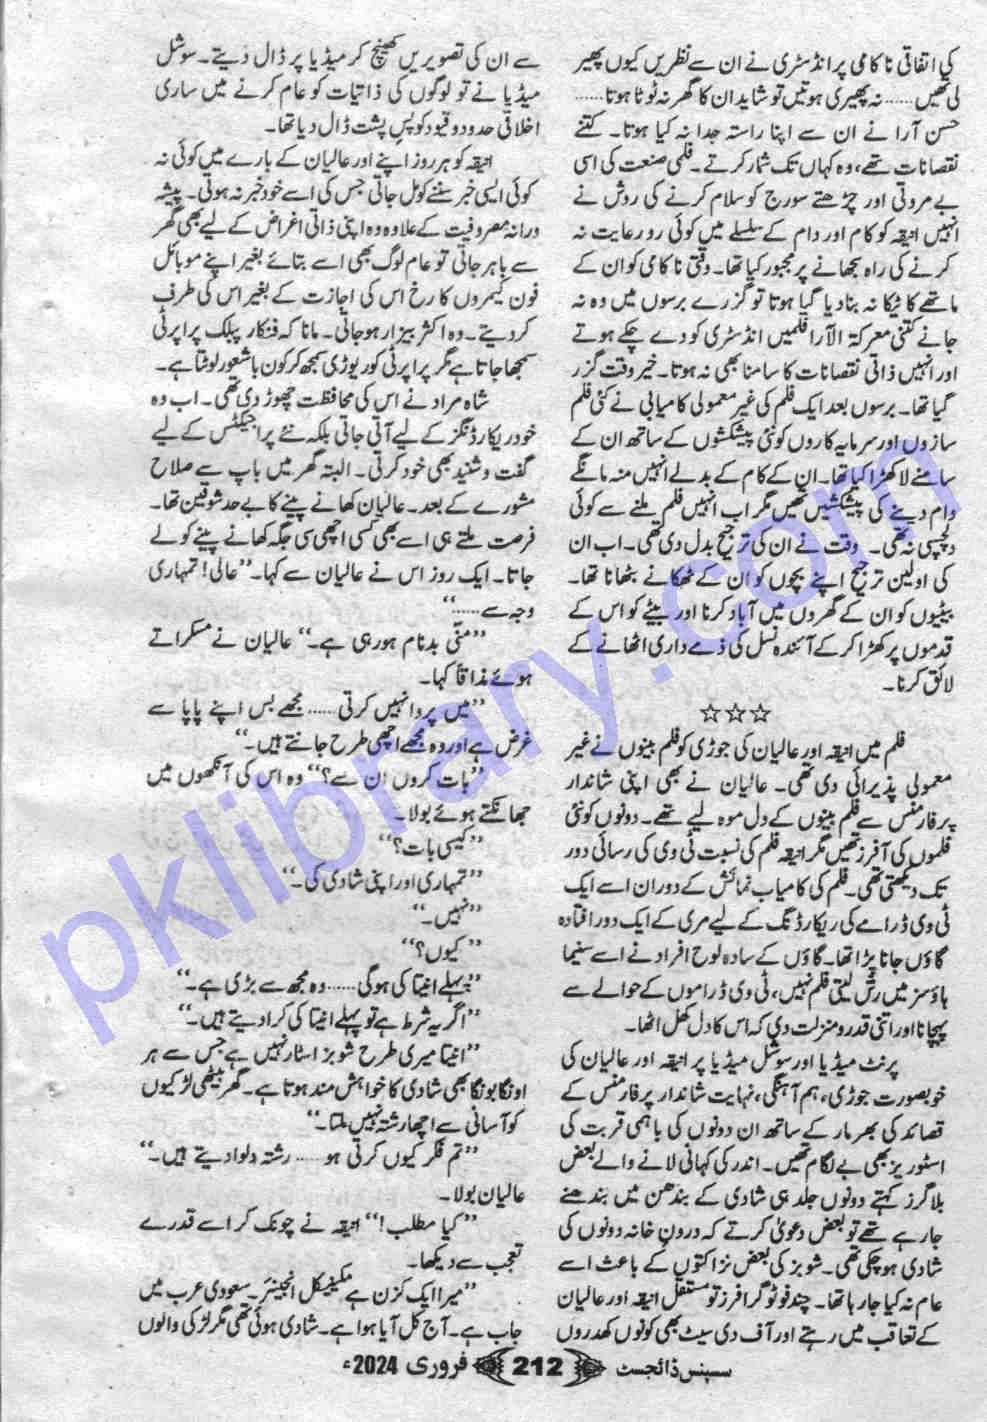 کی اتفاقی ناکامی پر انڈسٹری نے ان سے نظریں کیوں پھیر
لی تھیں...... نہ پھیری ہوتیں تو شاید ان کا گھر نہ ٹوٹا ہوتا......
حسن آرا نے ان سے اپنا راستہ جدا نہ کیا ہوتا۔ کتنے
نقصانات تھے، وہ کہاں تک شمار کرتے۔ فلمی صنعت کی اسی
بے مروتی اور چڑھتے سورج کو سلام کرنے کی روش نے
انہیں انیقہ کو کام اور دام کے سلسلے میں کوئی رو رعایت نہ
کرنے کی راہ سجھانے پر مجبور کیا تھا۔ وقتی ناکامی کو ان کے
ماتھے کا ٹیکا نہ بنا دیا گیا ہوتا تو گزرے برسوں میں وہ نہ
جانے کتنی معرکۃ الآرا فلمیں انڈسٹری کو دے چکے ہوتے
اور انہیں ذاتی نقصانات کا سامنا بھی نہ ہوتا۔ خیر وقت گزر
گیا تھا۔ برسوں بعد ایک فلم کی غیر معمولی کامیابی نے کئی فلم
سازوں اور سرمایہ کاروں کو نئی پیشکشوں کے ساتھ ان کے
سامنے لا کھڑا کیا تھا۔ ان کے کام کے بدلے انہیں منہ مانگے
دام دینے کی پیشکشیں تھیں مگر اب انہیں فلم ملنے سے کوئی
دلچسپی نہ تھی۔ وقت نے ان کی ترجیح بدل دی تھی۔ اب ان
کی اولین ترجیح اپنے بچوں کو ان کے ٹھکانے بٹھانا تھا۔
بیٹیوں کو ان کے گھروں میں آباد کرنا اور بیٹے کو اس کے
قدموں پر کھڑا کر کے آئندہ نسل کی ذمے داری اٹھانے کے
لائق کرنا۔
☆☆☆
فلم میں انیقہ اور عالیان کی جوڑی کو فلم بینوں نے غیر
معمولی پذیرائی دی تھی۔ عالیان نے بھی اپنی شاندار
پرفارمنس سے فلم بینوں کے دل موہ لیے تھے۔ دونوں کو نئی
فلموں کی آفرز تھیں مگر انیقہ فلم کی نسبت ٹی وی کی رسائی دور
تک دیکھتی تھی۔ فلم کی کامیاب نمائش کے دوران اسے ایک
ٹی وی ڈرامے کی ریکارڈنگ کے لیے مری کے ایک دور افتادہ
گاؤں جانا پڑا تھا۔ گاؤں کے سادہ لوح افراد نے اسے سنیما
ہاؤسز میں رش لیتی فلم نہیں، ٹی وی ڈراموں کے حوالے سے
پہچانا اور اتنی قدر و منزلت دی کہ اس کا دل کھل اٹھا۔
پرنٹ میڈیا اور سوشل میڈیا پر انیقہ اور عالیان کی
خوبصورت جوڑی، ہم آہنگی، نہایت شاندار پرفارمنس کے
قصائد کی بھرمار کے ساتھ ان دونوں کی باہمی قربت کی
اسٹوریز بھی بے لگام تھیں۔ اندر کی کہانی لانے والے بعض
بلاگرز کہتے دونوں جلد ہی شادی کے بندھن میں بندھنے
جا رہے تھے تو بعض دعویٰ کرتے کہ درون خانہ دونوں کی
شادی ہو چکی تھی۔ شوبز کی بعض نزاکتوں کے باعث اسے
عام نہ کیا جا رہا تھا۔ چند فوٹوگرافرز تو مستقل انیقہ اور عالیان
کے تعاقب میں رہتے اور آف دی سیٹ بھی کونوں کھدروں
سے ان کی تصویریں کھینچ کر میڈیا پر ڈال دیتے۔ سوشل
میڈیا نے تو لوگوں کی ذاتیات کو عام کرنے میں ساری
اخلاقی حدود و قیود کو پس پشت ڈال دیا تھا۔
انیقہ کو ہر روز اپنے اور عالیان کے بارے میں کوئی نہ
کوئی ایسی خبر سننے کو مل جاتی جس کی اسے خود خبر نہ ہوتی۔ پیشہ
ورانہ مصروفیت کے علاوہ وہ اپنی ذاتی اغراض کے لیے بھی گھر
سے باہر جاتی تو عام لوگ بھی اسے بتائے بغیر اپنے موبائل
فون کیمروں کا رخ اس کی اجازت کے بغیر اس کی طرف
کر دیتے۔ وہ اکثر بیزار ہو جاتی۔ مانا کہ فنکار پبلک پراپرٹی
سمجھا جاتا ہے مگر پراپرٹی کو ریوڑی سمجھ کر کون باشعور لوٹتا ہے۔
شاہ مراد نے اس کی محافظت چھوڑ دی تھی۔ اب وہ
خود ریکارڈنگز کے لیے آتی جاتی بلکہ نئے پراجیکٹس کے لیے
گفت و شنید بھی خود کرتی۔ البتہ گھر میں باپ سے صلاح
مشورے کے بعد۔ عالیان کھانے پینے کا بے حد شوقین تھا۔
فرصت ملتے ہی اسے بھی کسی اچھی سی جگہ کھانے پینے کو لے
جاتا۔ ایک روز اس نے عالیان سے کہا۔ ”عالی! تمہاری
وجہ سے......“
”منّی بدنام ہو رہی ہے۔“ عالیان نے مسکراتے
ہوئے مذاقاً کہا۔
”میں پروا نہیں کرتی...... مجھے بس اپنے پاپا سے
غرض ہے اور وہ مجھے اچھی طرح جانتے ہیں۔“
”بات کروں ان سے؟“ وہ اس کی آنکھوں میں
جھانکتے ہوئے بولا۔
”کیسی بات؟“
”تمہاری اور اپنی شادی کی۔“
”نہیں۔“
”کیوں؟“
”پہلے انیتا کی ہو گی...... وہ مجھ سے بڑی ہے۔“
”اگر یہ شرط ہے تو پہلے انیتا کی کرا دیتے ہیں۔“
”انیتا میری طرح شوبز اسٹار نہیں ہے جس سے ہر
اونگا بونگا بھی شادی کا خواہش مند ہوتا ہے۔ گھر بیٹھی لڑکیوں
کو آسانی سے اچھا رشتہ نہیں ملتا۔“
”تم فکر کیوں کرتی ہو...... رشتہ دلوا دیتے ہیں۔“
عالیان بولا۔
”کیا مطلب!“ انیقہ نے چونک کر اسے قدرے
تعجب سے دیکھا۔
”میرا ایک کزن ہے مکینیکل انجینئر۔ سعودی عرب میں
جاب ہے۔ آج کل آیا ہوا ہے۔ شادی ہوئی تھی مگر لڑکی والوں
سسپنس ڈائجسٹ 212 فروری 2024ء
pklibrary.com